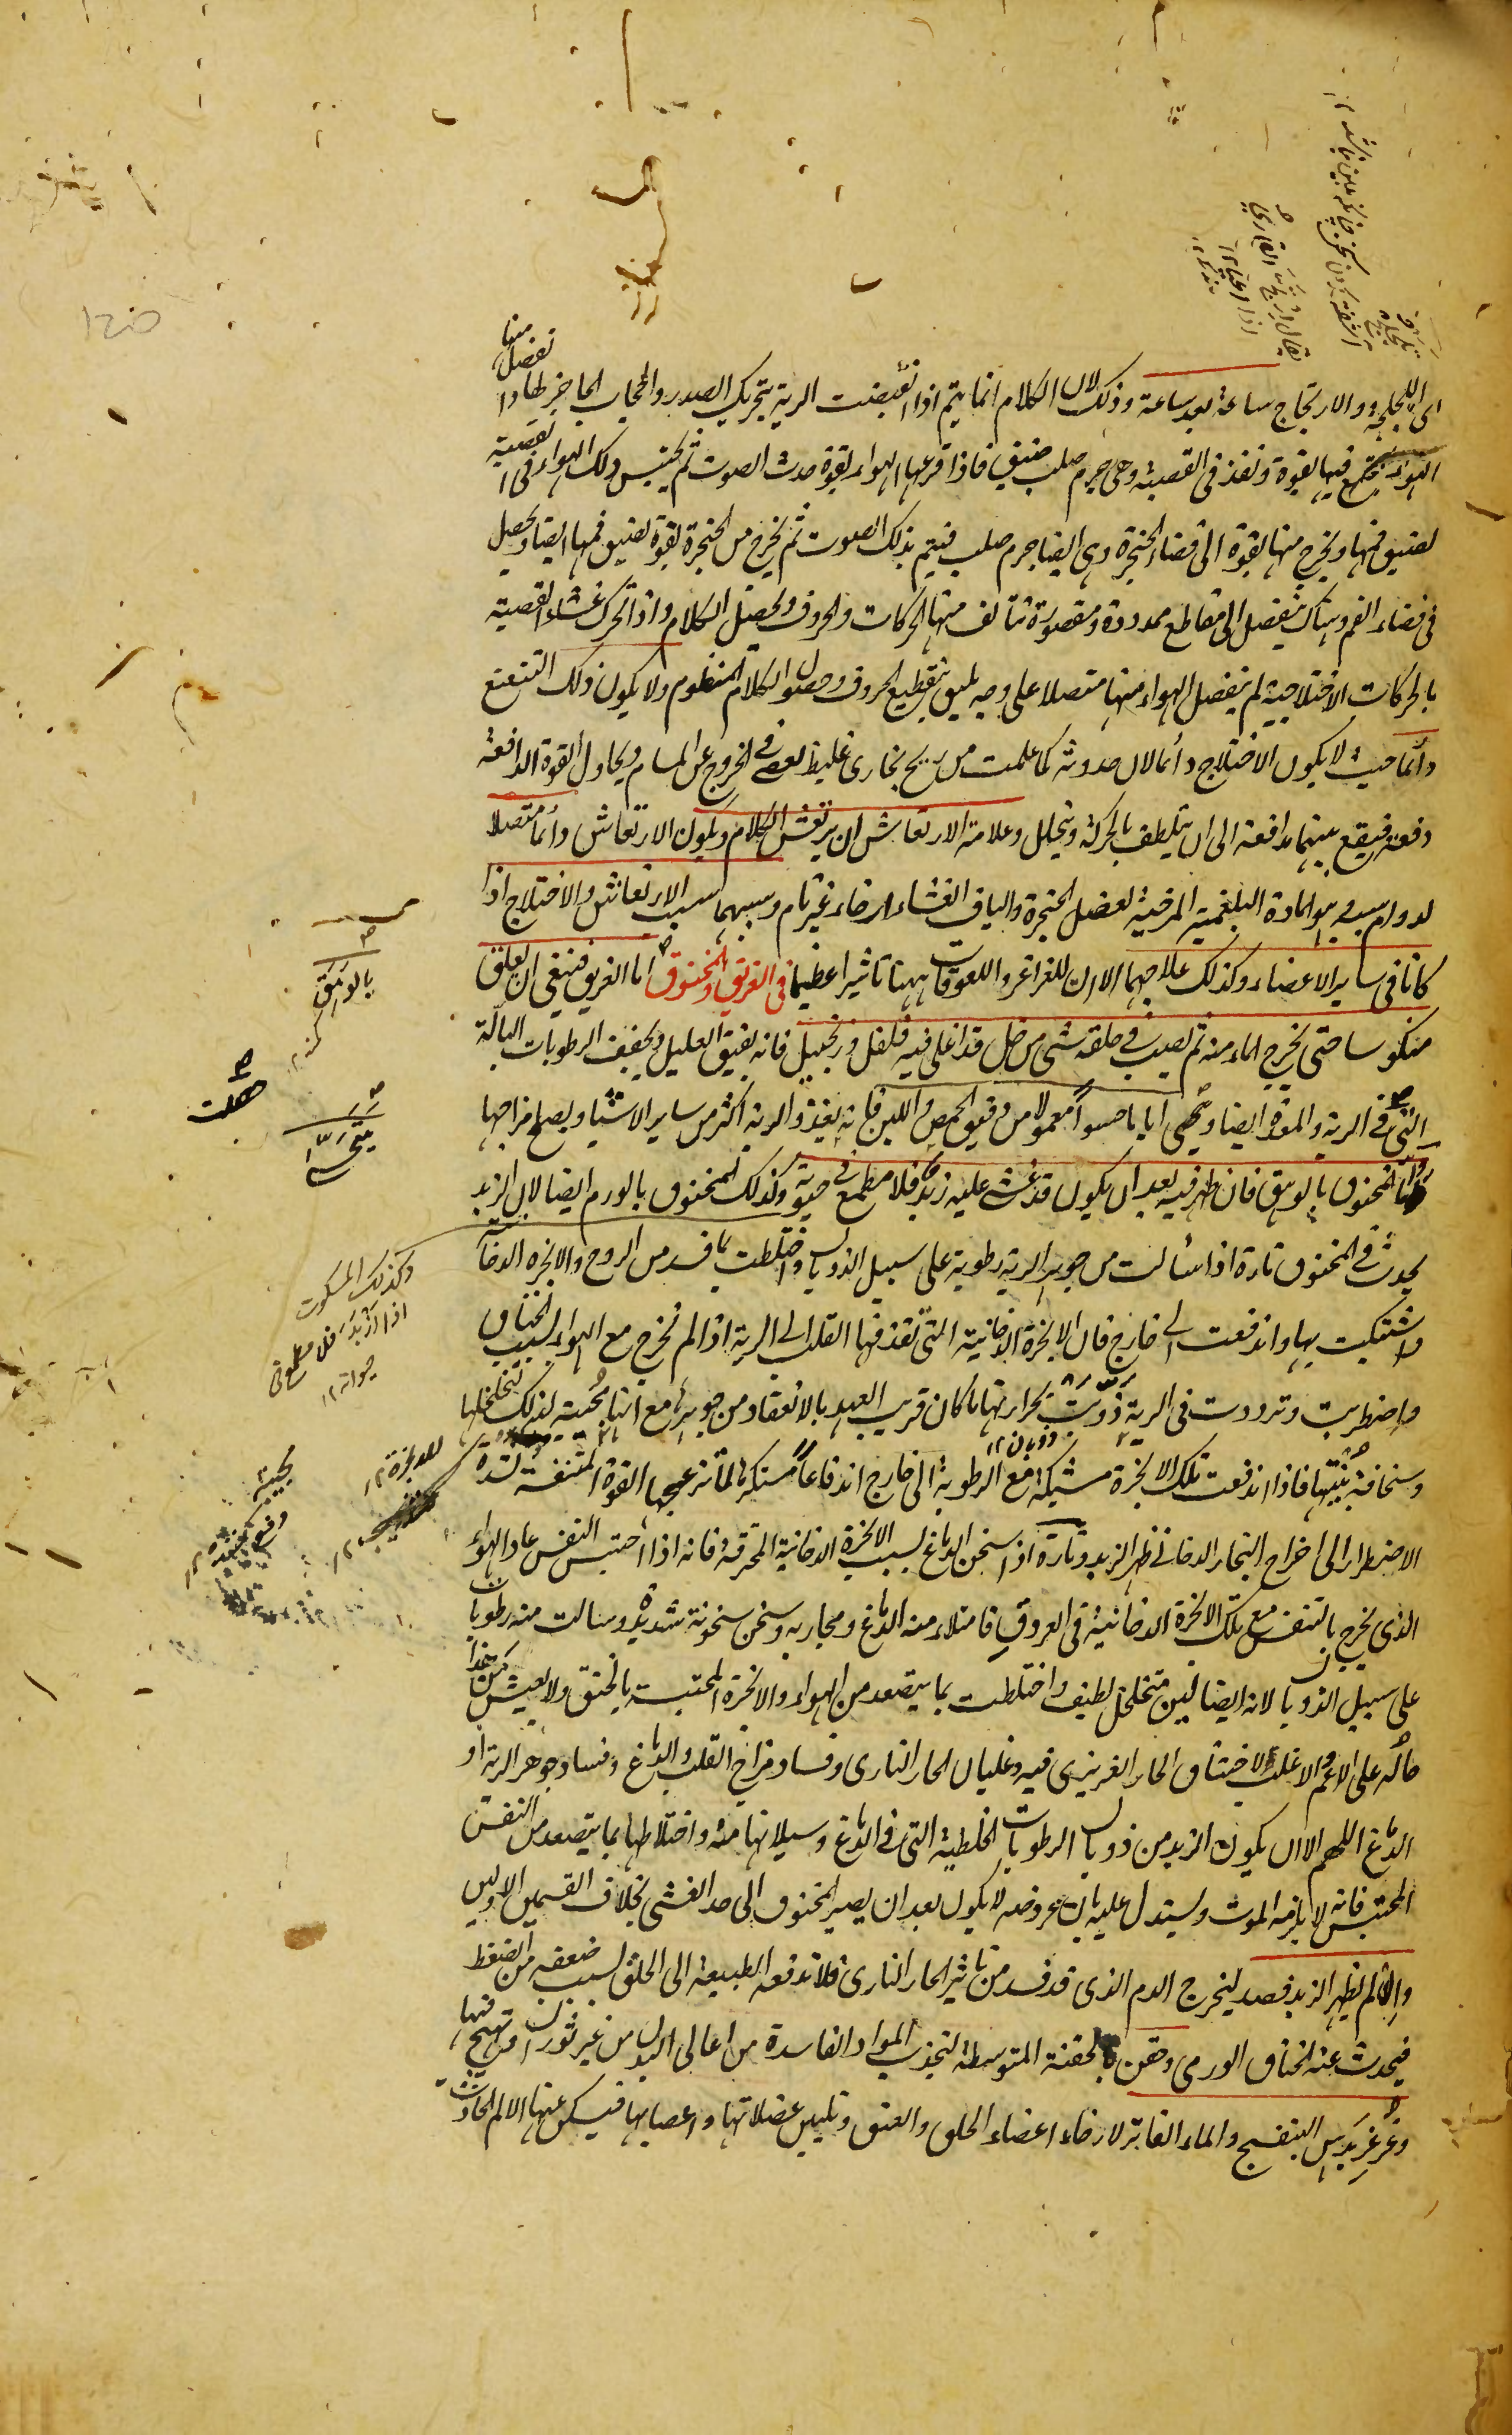 اى اللجلجة والارتجاج ساعة بعد ساعة وذلك لان الكلام انما يتم اذا انقبضت الرية بتحريك الصدر والحجاب الحاجز لها واذا انفصل منها
الهواء المجتمع فيها بقوة ونفذ فى القصبة وهى جرم صلب ضيق فاذا قرعها الهواء بقوة حدث الصوت ثم يحتبس ذلك الهواء فى القصبة
لضيق فمها ويخرج منها بقوة الى فضاء الحنجرة وهى ايضا جرم صلب فيتم بذلك الصوت ثم يخرج من الحنجرة بقوة لضيق فمها ايضا ويحصل
فى فضاء الفم وهناك ينفصل الى مقاطع ممدودة ومقصورة تتألف منها الحركات والحروف ويحصل الكلام واذا تحرك غشاء القصبة
بالحركات الاختلاجية لم ينفصل الهواء منها متصلا على وجه يليق بتقطيع الحروف وحصول الكلام المنظوم ولا يكون ذلك التتعتع
دائما حيث لا يكون الاختلاج دائما لان حدوثه كما علمت من ريح بخارى غليظ يعصى فى الخروج عن المسام ويحاول القوة الدافعة
دفعه فيقع بينهما مدافعة الى ان يتلطف بالحركة ويتحلل وعلامة الارتعاش ان يرتعش الكلام ويكون الارتعاش دائما متصلا
لدوام سببه وهو المادة البلغمية المرخية لعضل الحنجرة والياف الغشاء ارخاء غير تام وسببهما سبب الارتعاش والاختلاج اذا
كانا فى ساير الاعضاء وكذلك علاجهما الا ان للغراغر واللعوقات ههنا تاثيرا عظيما فى الغريق والمخنوق اما الغريق فينبغى ان يعلق
منكوسا حتى يخرج الماء منه ثم يصب فى حلقه شئ من خل قد اغلى فيه فلفل وزنجبيل فانه يفيق العليل ويجفف الرطوبات البالة
التى فى الرية والمرى ايضا ويحسى اياما حسوا معمولا من دقيق الحمص واللبن فانه يغذو الرية اكثر من ساير الاشيا ويصلح مزاجها
واما المخنوق بالوهق فان ظهر فيه بعد ان يكون قد غشى عليه زبد فلا مطمع فى حيوته وكذلك المخنوق بالورم ايضا لان الزبد
يحدث فى المخنوق تارة اذا سالت من جوهر الرية رطوبة على سبيل الذوبان واختلطت بما فسد من الروح والابخرة الدخانية
واشتبكت بها واندفعت الى خارج فان الابخرة الدخانية التى تنفذ فيها القلب الى الرية اذا لم تخرج مع الهواء لسبب الخناق
واضطربت وترددت فى الرية ذوبت بحرارتها ما كان قريب العهد بالانعقاد من جوهرها مع انها مجيبة لذلك لتخلخلها
وسخافة بنيتها فاذا اندفعت تلك الابخرة مشتبكة مع الرطوبة الى خارج اندفاعا مستكرها لما تزعجها القوة المتنفسة لشدة
الاضطرار الى اخراج البخار الدخانى ظهر الزبد وتارة اذا سخن الدماغ بسبب الابخرة الدخانية المحترقة فانه اذا احتبس النفس عاد الهواء
الذى يخرج بالتنفس مع تلك الابخرة الدخانية فى العروق فامتلاء منه الدماغ ومجاريه وسخن سخونة شديدة وسالت منه رطوبات
على سبيل الذوبان لانه ايضا لين متخلخل لطيف واختلطت بما يتصعد من الهواء والابخرة المحتبسة بالخنق ولا يعيش من هذا
حاله على الاعم الاغلب لاختناق الحار الغريزى فيه وغليان الحار النارى وفساد مزاج القلب والدماغ وفساد جوهر الرية او
الدماغ اللهم الا ان يكون الزبد من ذوبان الرطوبات الخلطية التى فى الدماغ وسيلانها منه واختلاطها بما يتصعد من النفس
المحتبس فانه لا يلزمه الموت ويستدل عليه بان عروضه لا يكون بعد ان يصير المخنوق الى حد الغشى بخلاف القسمين الاولين
وان لم يظهر الزبد فصد ليخرج الدم الذى قد فسد من تاثير الحار النارى فلا تدفعه الطبيعة الى الحلق لسبب ضعفه من الضغط
فيحدث عنه الخناق الورمى وحقن بالحقنة المتوسطة لتجذب المواد الفاسدة من اعالى البدن من غير ثوران او تهيج فيها
وغرغر بدهن البنفسج والماء الفاتر لارخاء اعضاء الحلق والعنق وتليين عضلاتها واعصابها فيسكن عنها الالم الحادث
بالوهق
وكذلك المسكوت
اذا ازبد فلا مطمع فى
حيوته ١٢